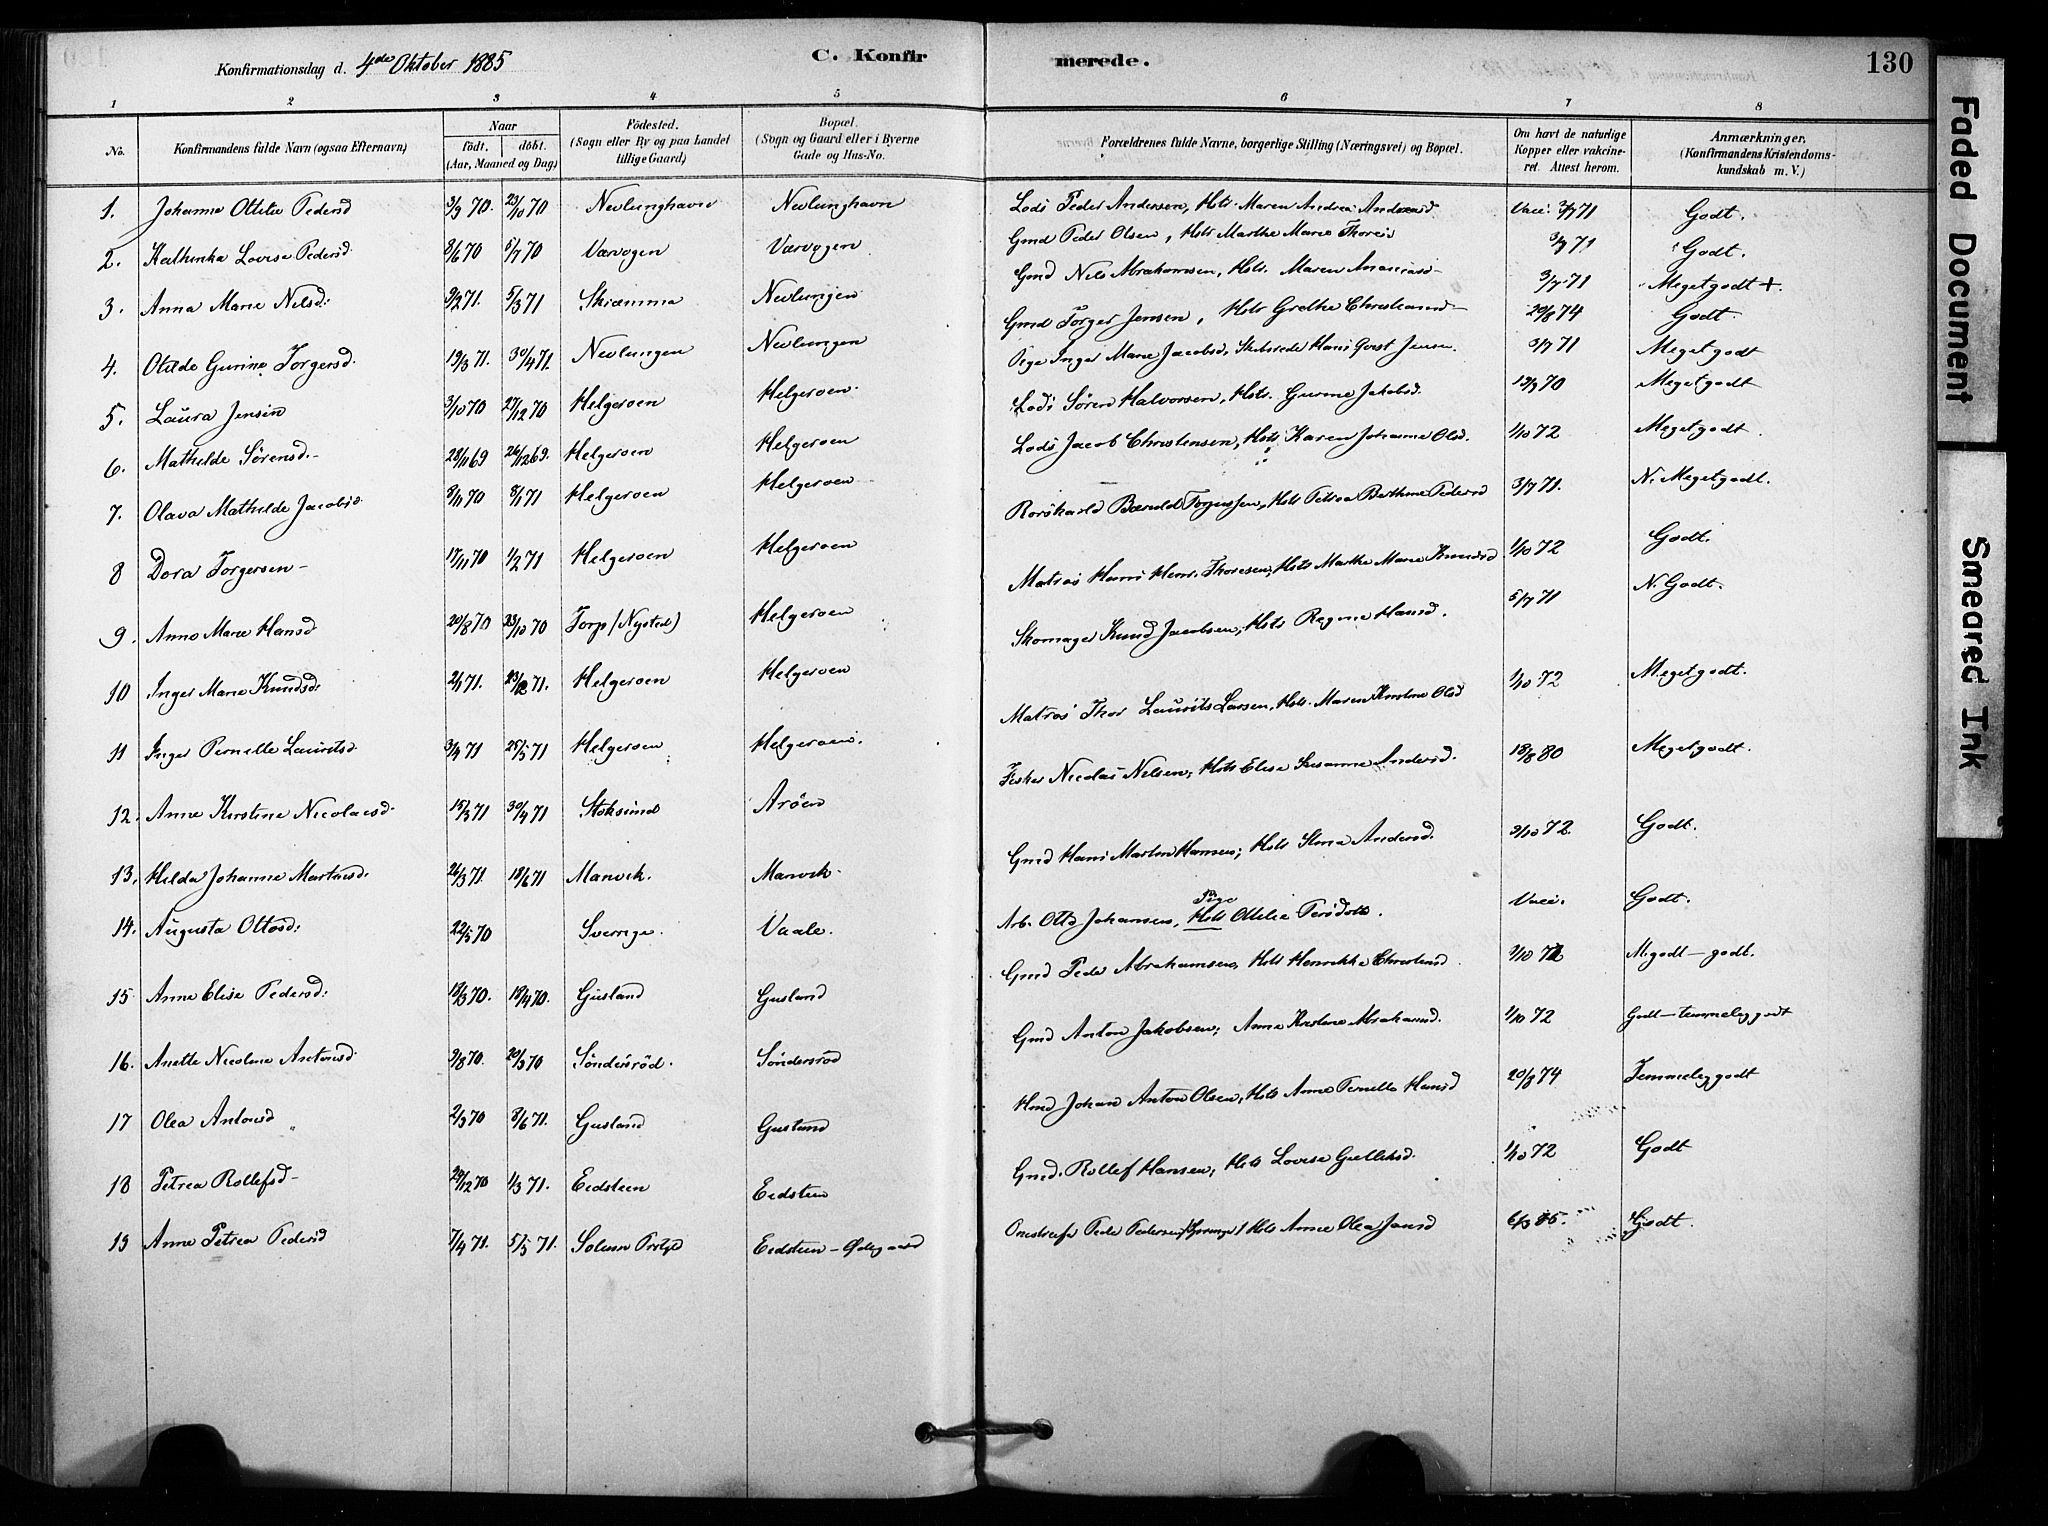 Konfirmationsdag d. 4de Oktober 1885 C. Konfirmerede. 130
1 2 3 4 5 6 7 8
No. Konfirmandens fulde Navn (ogsaa Efternavn) Naar födt. döbt. (Aar, Maaned og Dag) Födested. (Sogn eller By og paa Landet tillige Gaard) Bopæl. (Sogn og Gaard eller i Byerne Gade og Hus-No. Forældrenes fulde Navne, borgerlige Stilling (Næringsvei) og Bopæl. Om havt de naturlige Kopper eller vakcineret. Attest herom. Anmærkninger. (Konfirmandens Kristendomskundskab m. V.)
1. Johanne Otilie Pedersd 3/9 70. 23/10 70 Nevlunghavn Nevlunghavn Lods Peder Andersen, Hstr. Maren Andrea Andreasd Vacc. 3/7 71 Godt.
2. Kathinka Lovise Pedersd. 8/6 70 5/7 70 Værvagen Værvagen Gmd Peder Olsen, Hstr Marthe Marie Thoresd 3/7 71 Godt.
3. Anna Marie Nilsd: 9/2 71. 5/3 71 Skiæmma Nevlungen Gmd Nils Abrahamsen, Hstr. Maren Ananiasd 3/7 71 Meget godt +.
4. Otilde Gurine Torgersd. 19/3 71. 30/4 71. Nevlungen Nevlungen Gmd Torger Jensen, Hstr Grethe Christiansd 20/8 74 Godt.
5. Laura Jensen 3/10 70 27/12 70 Helgeroen Helgeroen. Pige Inger Marie Jacobsd, Skibsreder Hans Qvist Jensen. 3/7 71 Meget godt
6. Mathilde Sörensd. 28/11 69 26/12 69. Helgeroen Helgeroen Lods Sören Halvorsen, Hstr. Gurine Jakobsd. 19/9 70 Meget godt
7. Olava Mathilde Jacobsd. 8/11 70 8/1 71 Helgeroen Helgeroen Lods Jacob Christensen, Hstr Karen Johanne Olsd. 1/10 72 Meget godt.
8 Dora Torgersen 17/11 70 1/2 71 Helgeroen Helgeroen Rorskarld Bæruld Torgersen, Hstr Petrea Bertine Pedersd 3/7 71. N. Meget godt.
9. Anne Marie Hansd 20/8 70 23/10 70 Torp (Nysted) Helgeroen Matros Hans Henr. Thoresen, Hstr Marthe Marie Knudsd 1/10 72 Godt.
10 Inger Marie Knudsd. 2/1 71. 23/2 71. Helgeroen Helgeroen Skomager Knud Jacobsen, Hstr Regine Hansd. 5/7 71 N. Godt.
11 Inger Pernelle Lauritsd. 3/4 71 25/5 71 Helgeroen Helgeroen. Matros Thor Laurits Larsen, Hstr. Maren Kirstine Olsd 1/10 72 Meget godt.
12. Anne Kirstine Nicolaisd. 15/3 71 30/4 71 Stoksund Aröen Fisker Nicolai Nilsen, Hstr Elise Susanne Andersd. 18/8 80 Meget godt.
13. Hilda Johanne Martinsd. 26/3 71. 18/6 71 Manvik. Manvik. Gmd Hans Martin Hansen; Hstr Stina Andersd. 9/10 72. Godt.
14. Augusta Ottosd. 22/5 70 Sverrige. Vaale. Arb. Otto Johansen, Hstr Pige Ottilie Persdotr. Vacc. Godt.
15 Anne Elise Pedersd. 18/3 70. 18/4 70. Gusland Gusland Gmd Peder Abrahamsen, Hstr Henrikke Christensd. 9/10 72 M. godt — godt.
16. Anette Nicoline Antonsd. 9/8 70. 20/9 70 Söndersröd. Söndersröd Gmd Anton Jakobsen; Anne Kristine Abrahamsd. 1/10 72 Godt — temmelig godt
17 Olea Antonsd 2/9 70 8/6 71. Gusland Gusland Hmd Johan Anton Olsen, Hstr Anne Pernelle Hansd 20/8 74 Temmelig godt
18 Petrea Rollefsd 29/12 70 1/3 71. Eidsteen Eidsteen Gmd. Rollef Hansen; Hstr Lovise Gulliksd. 1/10 72 Godt
19 Anne Petrea Pedersd 7/4 71. 5/5 71. Solum Prstgd Eidsteen — Ødegaard Peder Pedersen Hstr Anne Olea Jansd 6/3 85. Godt.
Faded Document
Smeared Ink